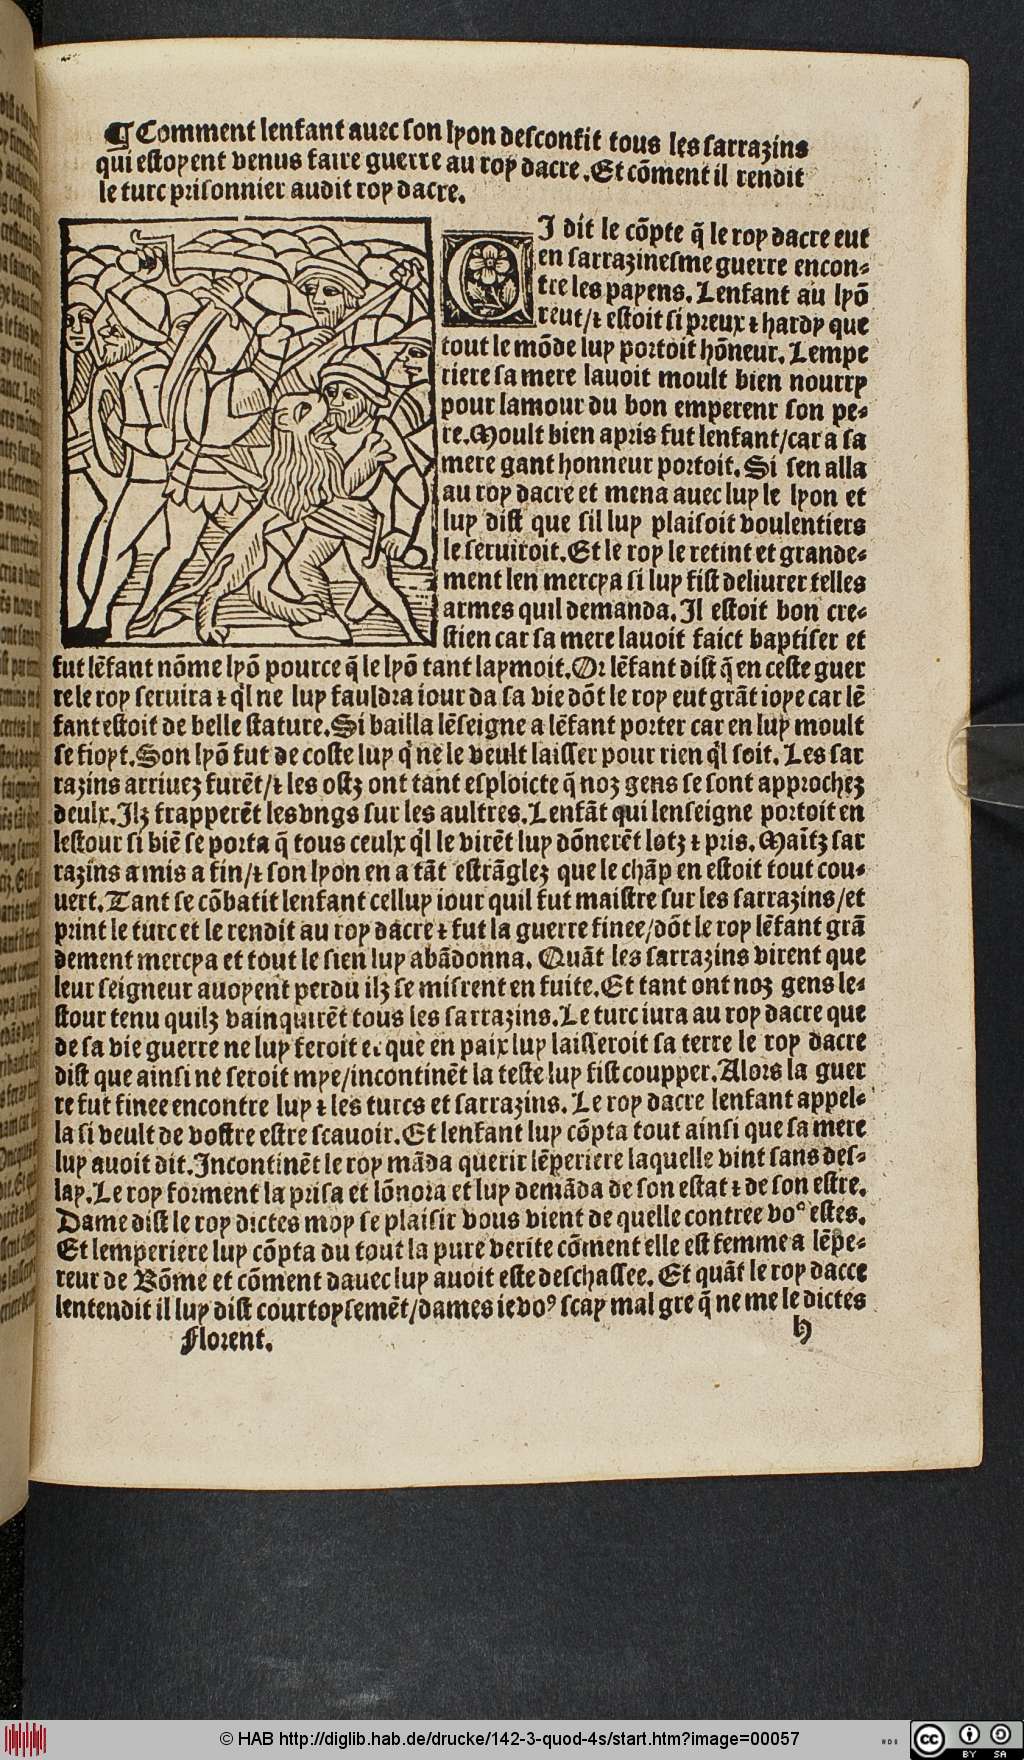 ¶ Comment lenfant auec son lyon desconfit tous les sarrazins
qui estoyent venus faire guerre au roy dacre. Et cõment il rendit
le turc prisonnier audit roy dacre.
CI dit le cõpte q̃ le roy dacre eut
en sarrazinesme guerre encon-
tre les payens. Lenfant au lyõ
creut/⁊ estoit si preux ⁊ hardy que
tout le mõde luy portoit hõneur. Lempe
riere sa mere lauoit moult bien nourry
pour lamour du bon emperenr son pe-
re. Moult bien apris fut lenfant/car a sa
mere gant honneur portoit. Si sen alla
au roy dacre et mena auec luy le lyon et
luy dist que sil luy plaisoit voulentiers
le seruiroit. Et le roy le retint et grande-
ment len mercya si luy fist deliurer telles
armes quil demanda. Il estoit bon cre-
stien car sa mere lauoit faict baptiser et
fut lẽfant nõme lyõ pource q̃ le lyõ tant laymoit. Or lẽfant dist q̃ en ceste guer
re le roy seruira ⁊ q̃l ne luy fauldra iour da sa vie dõt le roy eut grãt ioye car lẽ
fant estoit de belle stature. Si bailla lẽseigne a lẽfant porter car en luy moult
se fioyt. Son lyõ fut de coste luy q̃ ne le veult laisser pour rien q̃l soit. Les sar
razins arriuez furẽt/⁊ les ostz ont tant esploicte q̃ noz gens se sont approchez
deulx. Ilz frapperẽt les vngs sur les aultres. Lenfãt qui lenseigne portoit en
lestour si biẽ se porta q̃ tous ceulx q̃l le virẽt luy dõnerẽt lotz ⁊ pris. Maĩtz sar
razins a mis a fin/⁊ son lyon en a tãt estrãglez que le chãp en estoit tout cou-
uert. Tant se cõbatit lenfant celluy iour quil fut maistre sur les sarrazins/et
print le turc et le rendit au roy dacre ⁊ fut la guerre finee/dõt le roy lẽfant grã
dement mercya et tout le sien luy abãdonna. Quãt les sarrazins virent que
leur seigneur auoyent perdu ilz se misrent en fuite. Et tant ont noz gens le-
stour tenu quilz vainquirẽt tous les sarrazins. Le turc iura au roy dacre que
de sa vie guerre ne luy feroit et que en paix luy laisseroit sa terre le roy dacre
dist que ainsi ne seroit mye/incontinẽt la teste luy fist coupper. Alors la guer
re fut finee encontre luy ⁊ les turcs et sarrazins. Le roy dacre lenfant appel-
la si veult de vostre estre scauoir. Et lenfant luy cõpta tout ainsi que sa mere
luy auoit dit. Incontinẽt le roy mãda querir lẽperiere laquelle vint sans des-
lay. Le roy forment la prisa et lõnora et luy demãda de son estat ⁊ de son estre.
Dame dist le roy dictes moy se plaisir vous vient de quelle contree voꝰ estes.
Et lemperiere luy cõpta du tout la pure verite cõment elle est femme a lẽpe-
reur de Rõme et cõment dauec luy auoit este deschassee. Et quãt le roy dacce
lentendit il luy dist courtoysemẽt/dames ie voꝰ scay mal gre q̃ ne me le dictes
Florent. h
© HAB http://diglib.hab.de/drucke/142-3-quod-4s/start.htm?image=00057
cc BY SA